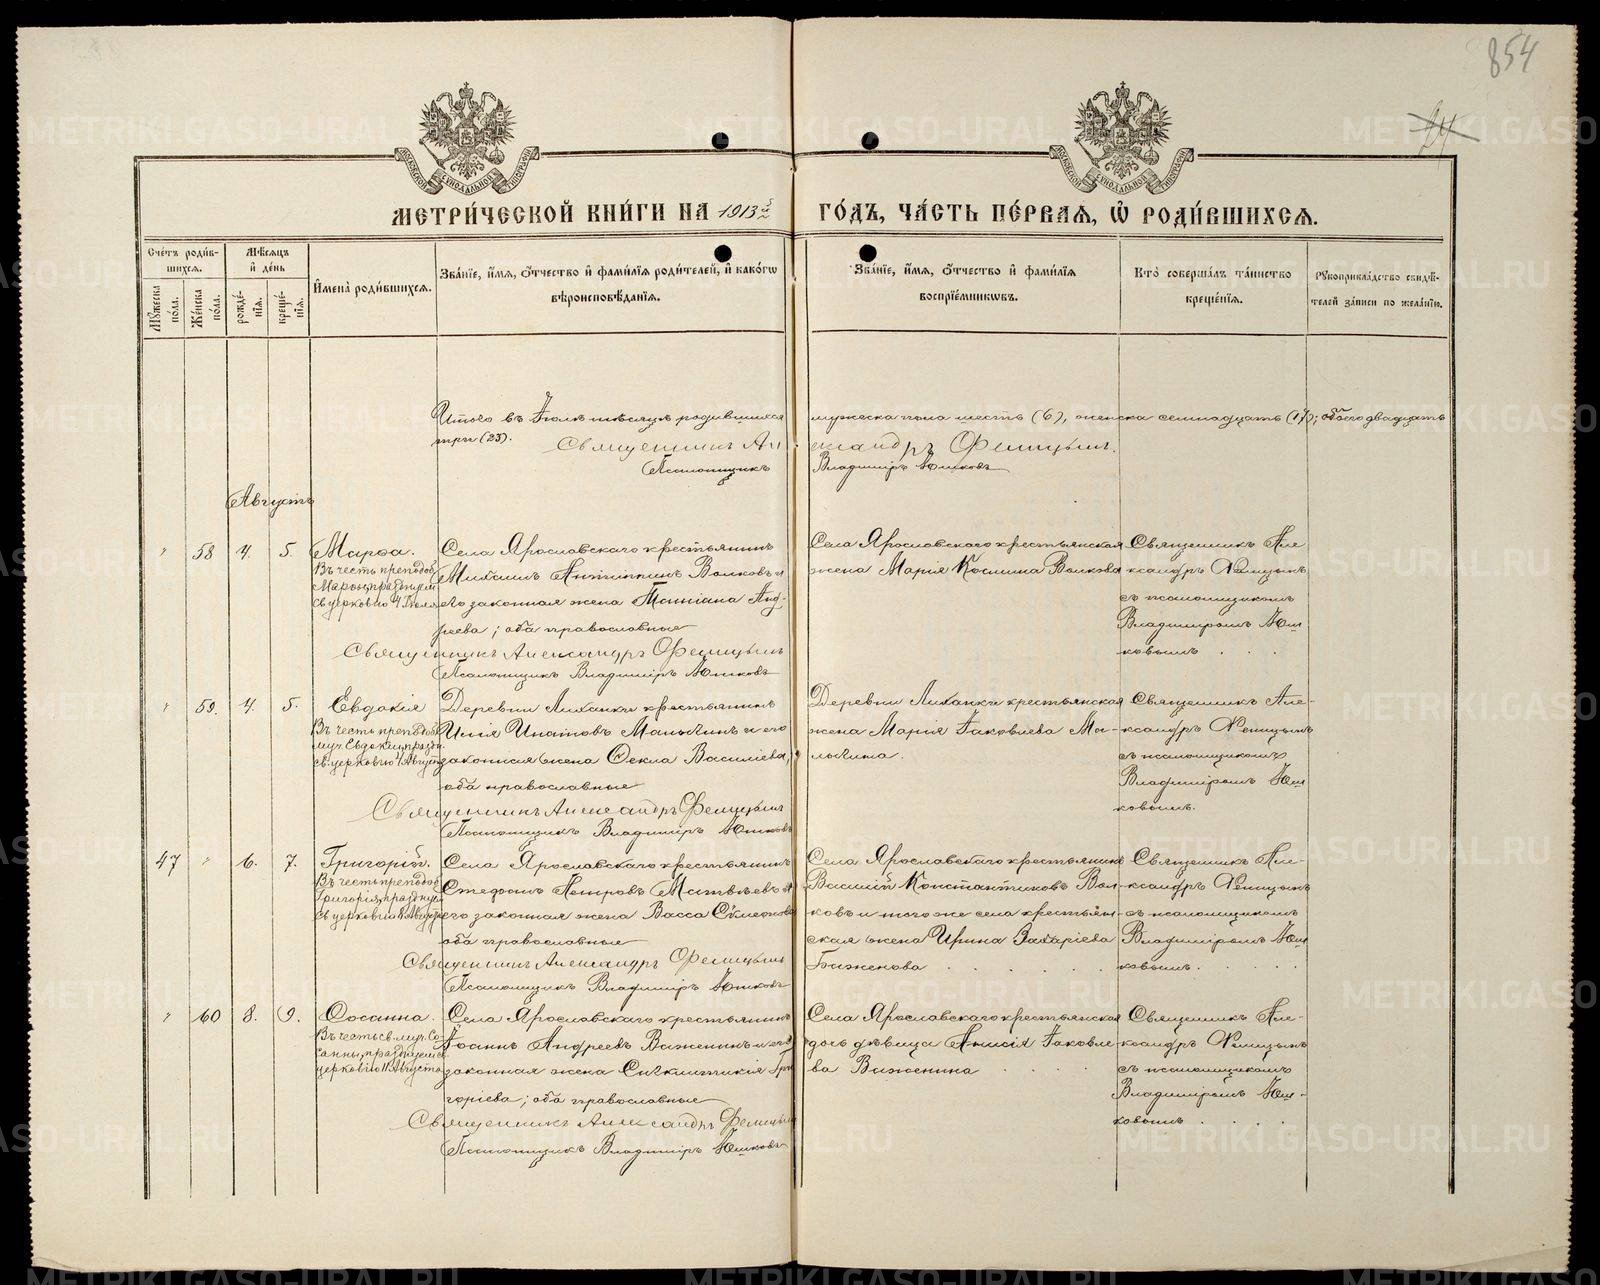 854
24
МЕТРИ́ЧЕСКОЙ КНИ́ГИ НА 1913 й
ГО́ДЪ, ЧА́СТЬ ПЕ́РВАѦ, Ѡ҆ РОДИ́ВШИХСѦ.
Сче́тъ роди́в-
шихсѧ.
Мꙋ́жеска по́ла.
Же́нска по́ла.
Мѣ́сѧцъ
и҆ де́нь
рожде́-
нїѧ.
креще́-
нїѧ.
И҆мена̀ роди́вшихсѧ.
Зва́нїе, и҆́мѧ, ѻ҆́тчество и҆ фами́лїѧ роди́телей, и҆ како́гѡ
вѣроисповѣ́данїѧ.
Зва́нїе, и҆́мѧ, ѻ҆́тчество и҆ фами́лїѧ
воспрїе́мникѡвъ.
Кто̀ соверша́лъ та́инство
креще́нїѧ.
Рꙋкоприкла́дство свидѣ́-
телей за́писи по жела́нїю.
Итого въ Іюлѣ мѣсяцѣ родившихся мужеска пола шесть (6), женска семнадцать (17); обоего двадцать
три (23).
Священникъ Александръ Фелицынъ.
Псаломщикъ Владиміръ Юшковъ
Августъ
" 58 4. 5. Марѳа.
Въ честь преподоб.
Марѳы, праздн
св. церковію 4 Іюля
Села Ярославскаго крестьянинъ
Михаилъ Антипинъ Волковъ и
его законная жена Татіана Анд-
реева; оба православные
Священникъ Александръ Фелицынъ
Псаломщикъ Владиміръ Юшковъ
Села Ярославскаго крестьянская
жена Марія Космина Волкова
Священникъ Але-
ксандръ Фелицынъ
съ псаломщикомъ
Владиміромъ Юш-
ковымъ . . .
" 59. 4. 5. Евдокія
Въ честь преподоб.
муч. Евдокіи, праздн.
св. церковію 4 Август
Деревни Лиханки крестьянинъ
Илія Ипатовъ Малыгинъ и его
законная жена Ѳекла Василіева,
оба православные
Священникъ Александръ Фелицынъ
Псаломщикъ Владиміръ Юшковъ
Деревни Лиханки крестьянская
жена Марія Іаковлева Ма-
лыгина.
Священникъ Але-
ксандръ Фелицынъ
съ псаломщикомъ
Владиміромъ Юш-
ковымъ.
47 " 6. 7. Григорій.
Въ честь преподоб.
Григорія, праздну
св церковію 8 Августа
Села Ярославскаго крестьянинъ
Стефанъ Петровъ Матвѣевъ и
его законная жена Васса Сѵмеонова
оба православные
Священникъ Александръ Фелицынъ
Псаломщикъ Владиміръ Юшковъ
Села Ярославскаго крестьянинъ
Василій Константиновъ Вол-
ковъ и того же села крестьян-
ская жена Ирина Захаріева
Баженова . . . .
Священникъ Але-
ксандръ Фелицынъ
съ псаломщикомъ
Владиміромъ Юш-
ковымъ. . . .
" 60 8. 9. Сосанна.
Въ честь св. муч. Со-
санны, празднуемой
церковію 11 Августа
Села Ярославскаго крестьянинъ
Іоаннъ Андреевъ Важенинъ и его
законная жена Сигклитикія Гри
горіева; оба православные
Священникъ Александръ Фелицынъ
Псаломщикъ Владиміръ Юшковъ
Села Ярославскаго крестьянская
дочь дѣвица Анисія Іаковле-
ва Важенина . . . .
Священникъ Але-
ксандръ Фелицынъ
съ псаломщикомъ
Владиміромъ Юш-
ковымъ . . . .
METRIKI.GASO-URAL.RU